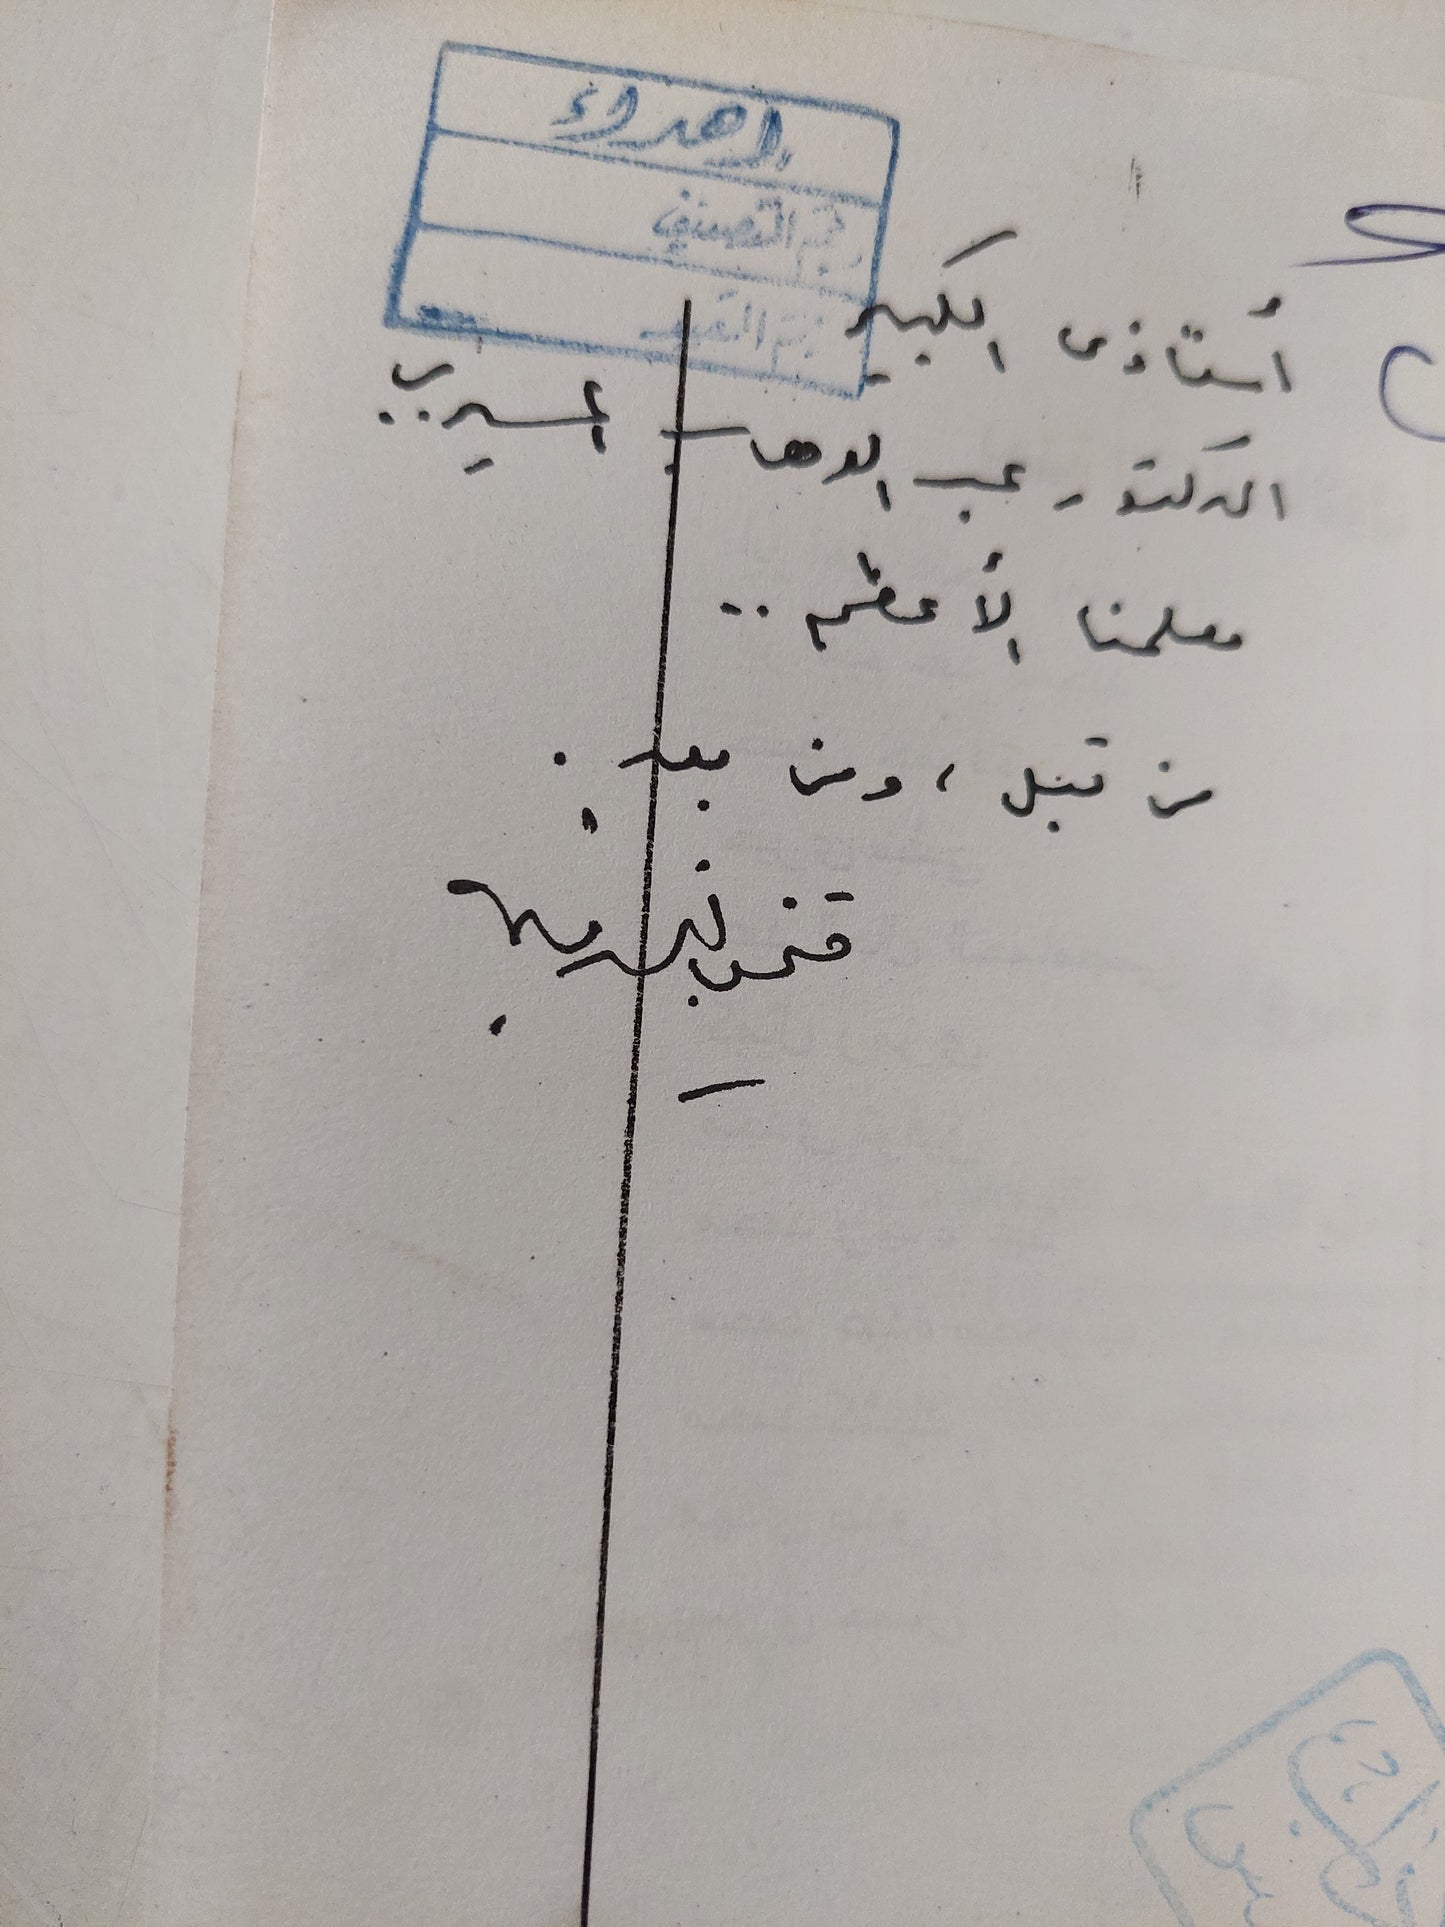 إهداء
رقم التصنيف
رقم
أستاذى الكبير
الدكتور عبد الوهاب المسيرى
معلمنا الأعظم ..
من قبل ، ومن بعد .